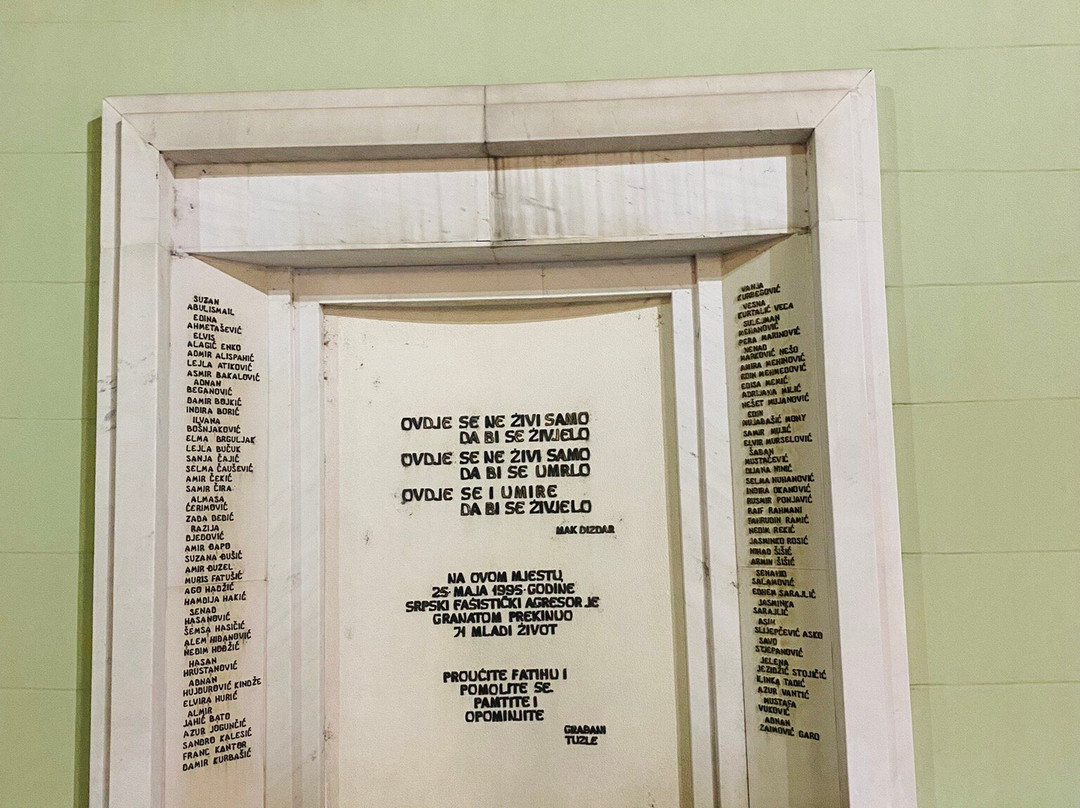 SUZAN
ABULISMAIL
EDINA
AHMETAŠEVIĆ
ELVIS
ALAGIĆ ENKO
ADMIR ALISPAHIĆ
LEJLA ATIKOVIĆ
ASMIR BAKALOVIĆ
ADNAN
BEGANOVIĆ
DAMIR BOJKIĆ
INDIRA BORIĆ
ILVANA
BOŠNJAKOVIĆ
ELMA BRGULJAK
LEJLA BUČUK
SANJA ČAJIĆ
SELMA ČAUŠEVIĆ
AMIR ČEKIĆ
SAMIR ČIRA
ALMASA
ĆERIMOVIĆ
ZADA DEDIĆ
RAZIJA
DJEDOVIĆ
AMIR ĐAPO
SUZANA ĐUŠIĆ
AMIR ĐUZEL
MURIS FATUŠIĆ
AGO HADŽIĆ
HAMDIJA HAKIĆ
SENAD
HASANOVIĆ
ŠEMSA HASIČIĆ
ALEM HIDANOVIĆ
NEDIM HODŽIĆ
HASAN
HRUSTANOVIĆ
ADNAN
HUJDUROVIĆ KINDŽE
ELVIRA HURIĆ
ALMIR
JAHIĆ BATO
AZUR JOGUNČIĆ
SANDRO KALESIĆ
FRANC KANTOR
DAMIR KURBAŠIĆ
OVDJE SE NE ŽIVI SAMO
DA BI SE ŽIVJELO
OVDJE SE NE ŽIVI SAMO
DA BI SE UMRLO
OVDJE SE I UMIRE
DA BI SE ŽIVJELO
MAK DIZDAR
NA OVOM MJESTU,
25· MAJA 1995· GODINE
SRPSKI FAŠISTIČKI AGRESOR JE
GRANATOM PREKINUO
71 MLADI ŽIVOT
PROUČITE FATIHU I
POMOLITE SE.
PAMTITE I
OPOMINJITE
GRAĐANI
TUZLE
VANJA
KURBEGOVIĆ
VESNA
KURTALIĆ VECA
SULEJMAN
MEHANOVIĆ
PERA MARINOVIĆ
NENAD
MARKOVIĆ NEŠO
AMIRA MEHINOVIĆ
EDIN MEHMEDOVIĆ
EDISA MEMIĆ
ADRIJANA MILIĆ
NEŠET MUJANOVIĆ
EDIN
MUJABAŠIĆ MONY
SAMIR MUJIĆ
ELVIR MURSELOVIĆ
ŠABAN
MUSTAČEVIĆ
DIJANA NINIĆ
SELMA NUHANOVIĆ
INDIRA OKANOVIĆ
RUSMIR PONJAVIĆ
RAIF RAHMANI
FAHRUDIN RAMIĆ
NEDIM REKIĆ
JASMINKO ROSIĆ
NIHAD ŠIŠIĆ
ARMIN ŠIŠIĆ
SENAHID
SALAMOVIĆ
EDHEM SARAJLIĆ
JASMINKA
SARAJLIĆ
ASIM
SLIJEPČEVIĆ ASKO
SAVO
STJEPANOVIĆ
JELENA
STOJIČIĆ
ILINKA TADIĆ
AZUR VANTIĆ
MUSTAFA
VUKOVIĆ
ADNAN
ZAIMOVIĆ GARO